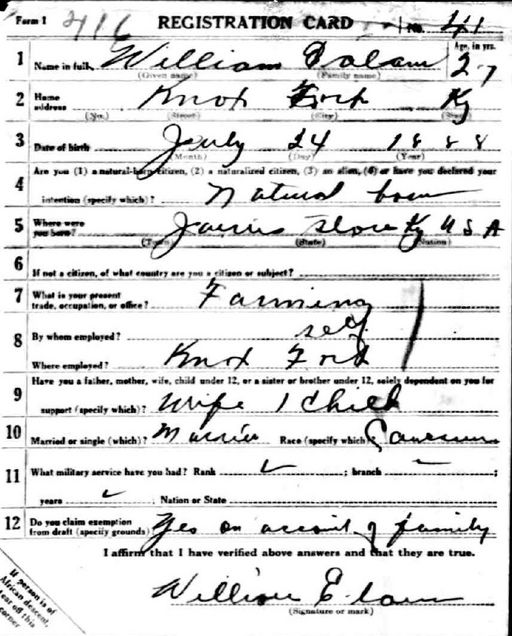 Form 1 416 REGISTRATION CARD No. 41
1 Name in full William Elam Age, in yrs. 27
(Given name) (Family name)
2 Home address Knox Fork Ky
(No.) (Street) (City) (State)
3 Date of birth July 24 1888
(Month) (Day) (Year)
Are you (1) a natural-born citizen, (2) a naturalized citizen, (3) an alien, (4) or have you declared your
4 intention (specify which)? Natural born
5 Where were you born? Store Ky U S A
(Town) (State) (Nation)
6 If not a citizen, of what country are you a citizen or subject?
7 What is your present trade, occupation, or office? Farming
8 By whom employed? self
Where employed? Knox Fork
Have you a father, mother, wife, child under 12, or a sister or brother under 12, solely dependent on you for
9 support (specify which)? Wife 1 Child
10 Married or single (which)? Married Race (specify which)? Caucasian
11 What military service have you had? Rank ✓ ; branch — ;
years ✓ ; Nation or State
12 Do you claim exemption from draft (specify grounds)? Yes on account of family
I affirm that I have verified above answers and that they are true.
William Elam
(Signature or mark)
If person is of
African descent,
tear off this
corner